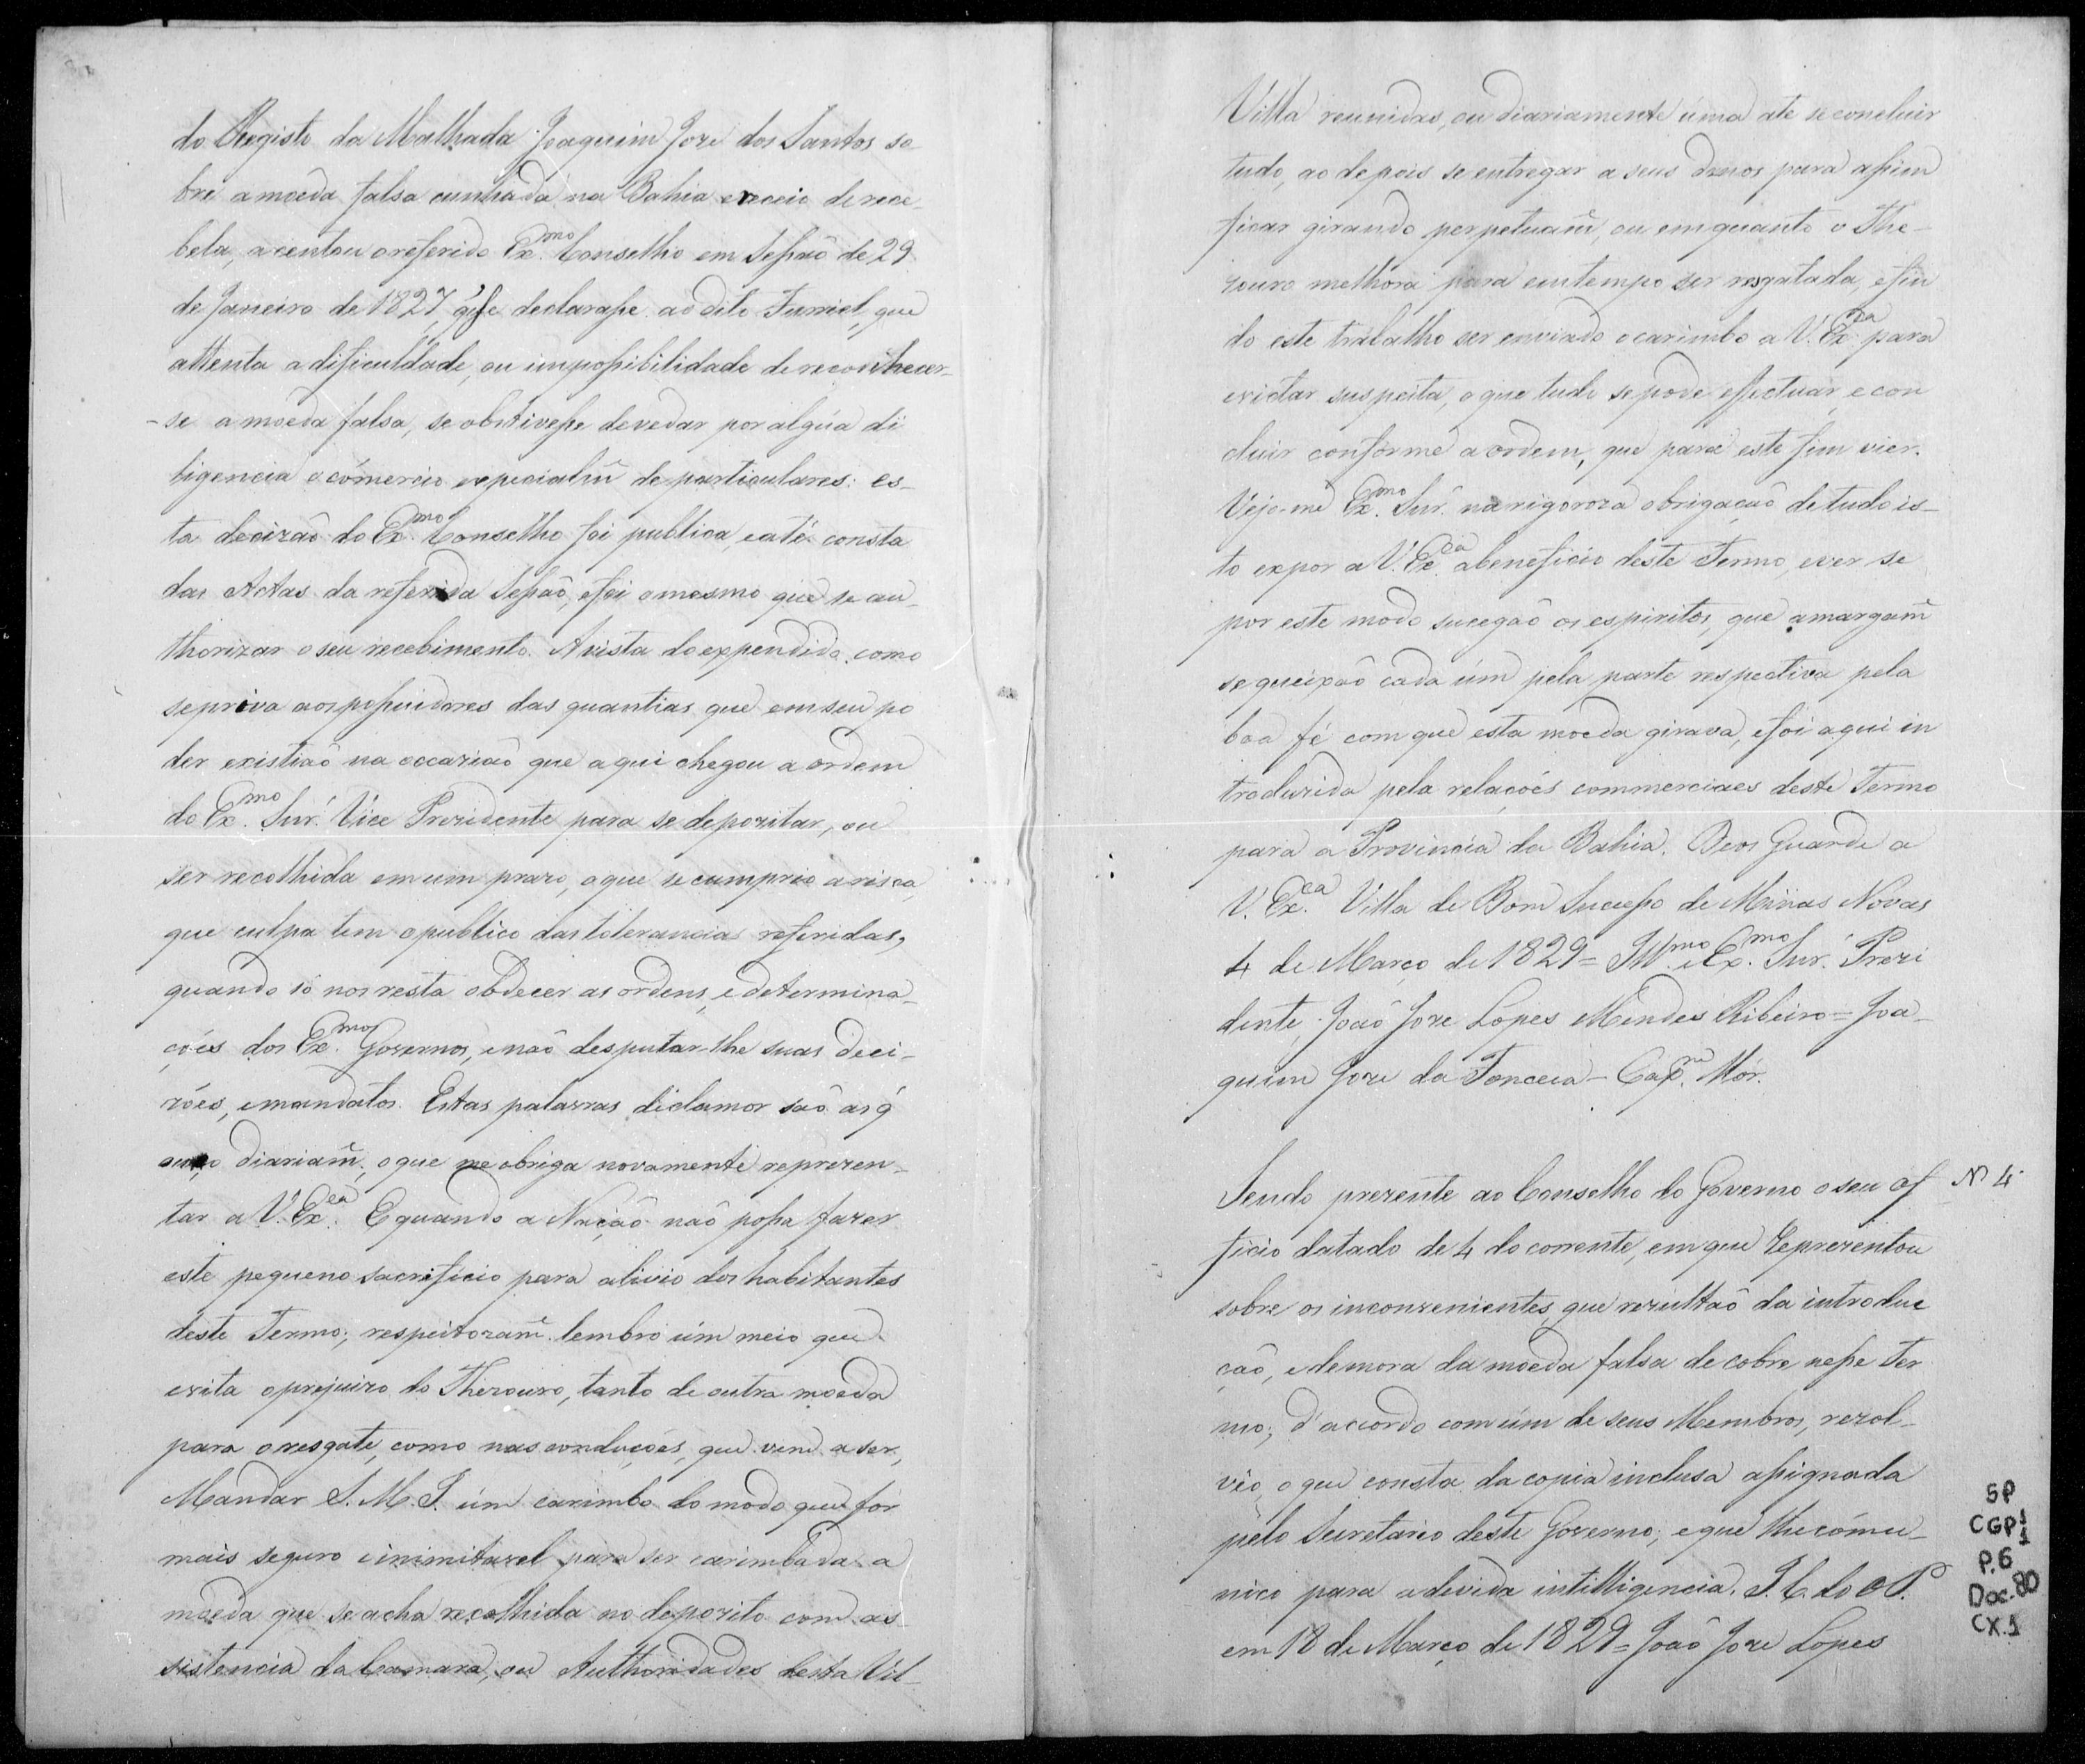 do Registo da Malhada Joaquim Joze dos Santos so-
bre a moeda falsa cunhada na Bahia e receio de rece-
bela, acentou o referido Ex.mo Conselho em Seſsaõ de 29
de Janeiro de 1827, q̃ se declaraſse ao dito Furriel, que
attenta a dificuldade, ou impoſsibilidade de reconhecer-
-se a moeda falsa, se obstiveſse de vedar por algũa di
ligencia o cómercio especialm̃ de particulares: es-
ta decizaõ do Ex.mo Conselho foi publica, e até consta
das Actas da referida Seſsaõ, e foi o mesmo que se au-
thorizar o seu recebimento. A vista do expendido como
se priva aos poſsuidores das quantias que em seu po
der existiaõ na occaziaõ que aqui chegou a ordem
do Ex.mo Snr. Vice Prezidente para se depozitar, ou
ser recolhida em um prazo, o que se cumprio a risca,
que culpa tem o publico das tolerancias referidas,
quando só nos resta obdecer as ordens, e determina-
ções dos Ex.mos Governos, e naõ desputar-lhe suas deci-
zões, e mandatos. Estas palavras di clamor saõ as q̃
ouço diariam̃, o que me obriga novamente reprezen-
tar a V. Ex.ca E quando a Naçaõ naõ poſsa fazer
este pequeno sacrificio para alivio dos habitantes
deste Termo; respeitozam̃ lembro úm meio que
evita o prejuizo do Thezouro, tanto de outra moeda
para o resgate, como nas conduções, que vem a ser,
Mandar S. M. I. úm carimbo do modo que for
mais seguro e inimitavel para ser carimbada a
moeda que se acha recolhida no depozito com as-
sistencia da Camara, ou Authoridades desta Vil-
Villa reunidas, ou diariamente úma ate se concluir
tudo, ao depois se entregar a seus donos para aſsim
ficar girando perpetuam̃, ou em quanto o The-
zouro melhóra para em tempo ser resgatada, e fin
do este trabalho ser enviado o carimbo a V. Ex.ca para
evictar suspeita, o que tudo se pode effectuar, e con
cluir conforme a ordem, que para este fim vier.
Vejo-me Ex.mo Snr. na rigoroza obrigaçaõ de tudo is-
to expor a V. Ex.ca a beneficio deste Termo, e ver se
por este modo sucegaõ os espiritos, que amargam̃
se queixaõ cada úm pela parte respectiva pela
boa fé com que esta moeda girava, e foi aqui in
troduzida pela relações commerciaes deste Termo
para a Provincia da Bahia. Deos Guarde a
V. Ex.ca Villa de Bom Suceſso de Minas Novas
4 de Março de 1829 = Ill.mo e Ex.mo Snr. Prezi
dente, Joaõ Joze Lopes Mendes Ribeiro = Joa-
quim Joze da Fonceca - Cap.m Mór.
Sendo prezente ao Conselho do Governo o seu of
Nº 4
ficio datado de 4 do corrente, em que reprezentou
sobre os inconvenientes, que rezultaõ da introduc
çaõ, e demora da moeda falsa de cobre neſse Ter
mo; d'accordo com úm de seus Membros, rezol-
veo, o que consta da copia incluza aſsignada
pelo Secretario deste Governo; e que lhe cómu-
nico para a devida intilligencia. I. C. do O. P.
em 18 de Março de 1829 = Joaõ Joze Lopes
SP
CGP 1/1
P.6
Doc. 80
CX.1